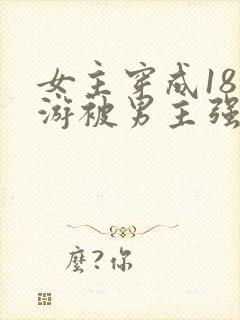 女主穿成18
游被男主强
麼?你